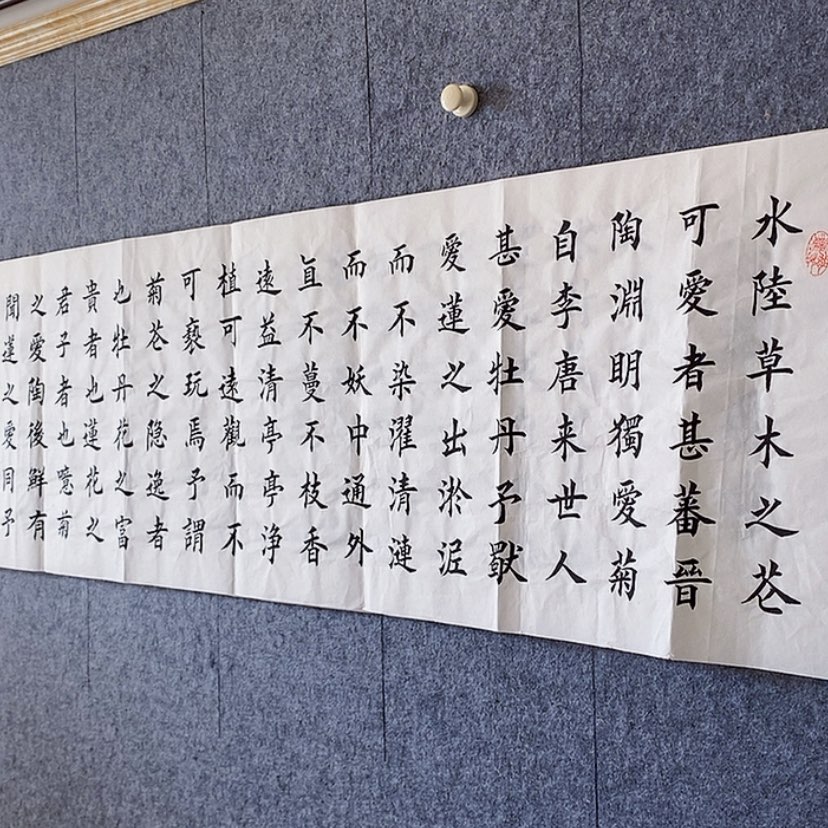 水陸草木之苍
可愛者甚蕃晉
陶淵明獨愛菊
自李唐来世人
甚愛牡丹予獸
愛蓮之出淤泥
而不染濯清漣
而不妖中通外
直不蔓不枝香
遠益清亭亭浄
植可遠觀而不
可褻玩焉予謂
菊苍之隐逸者
也牡丹花之富
貴者也蓮花之
君子者也噫菊
之愛陶後鮮有
聞蓮之愛同予